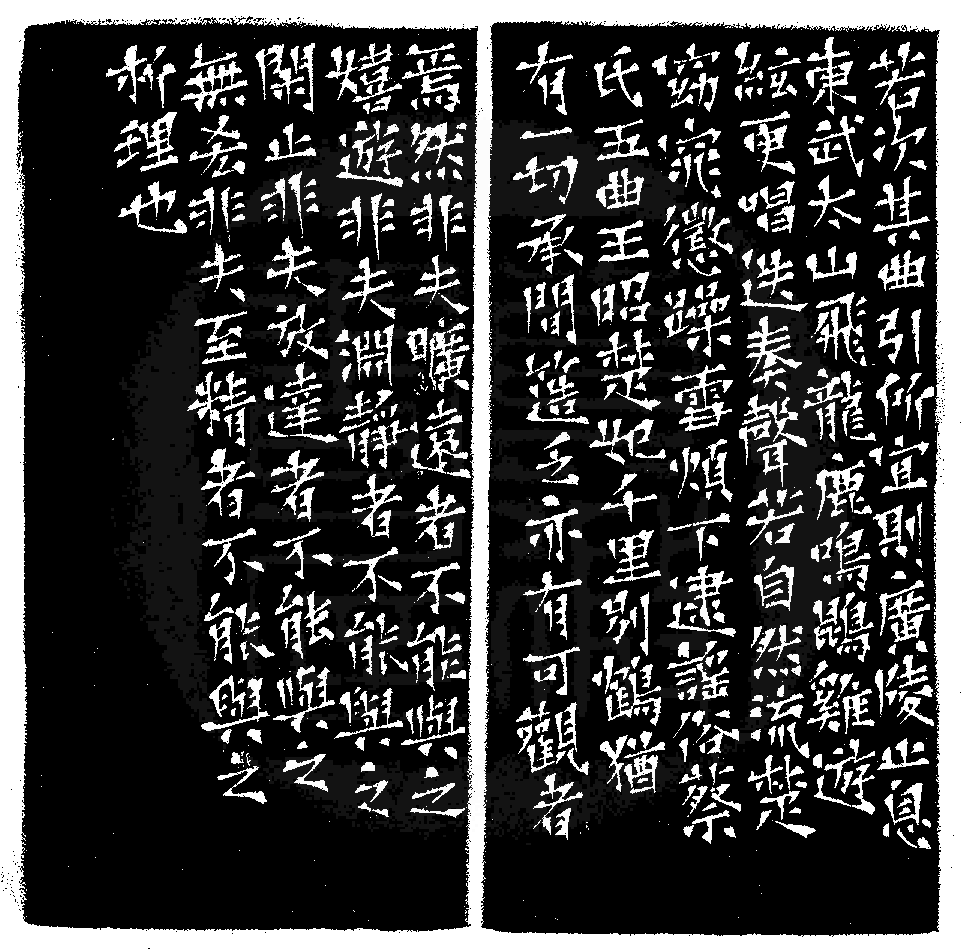 若次其曲引所宜則廣陵止息
東武太山飛龍鹿鳴鵾雞遊
絃更唱迭奏聲若自然流楚
窈窕懲躁雪煩下逮謠俗蔡
氏五曲王昭楚妃千里別鶴猶
有一切承間簉乏亦有可觀者
焉然非夫曠遠者不能與之
嬉遊非夫淵靜者不能與之
閑止非夫放達者不能與之
無吝非夫至精者不能與之
析理也